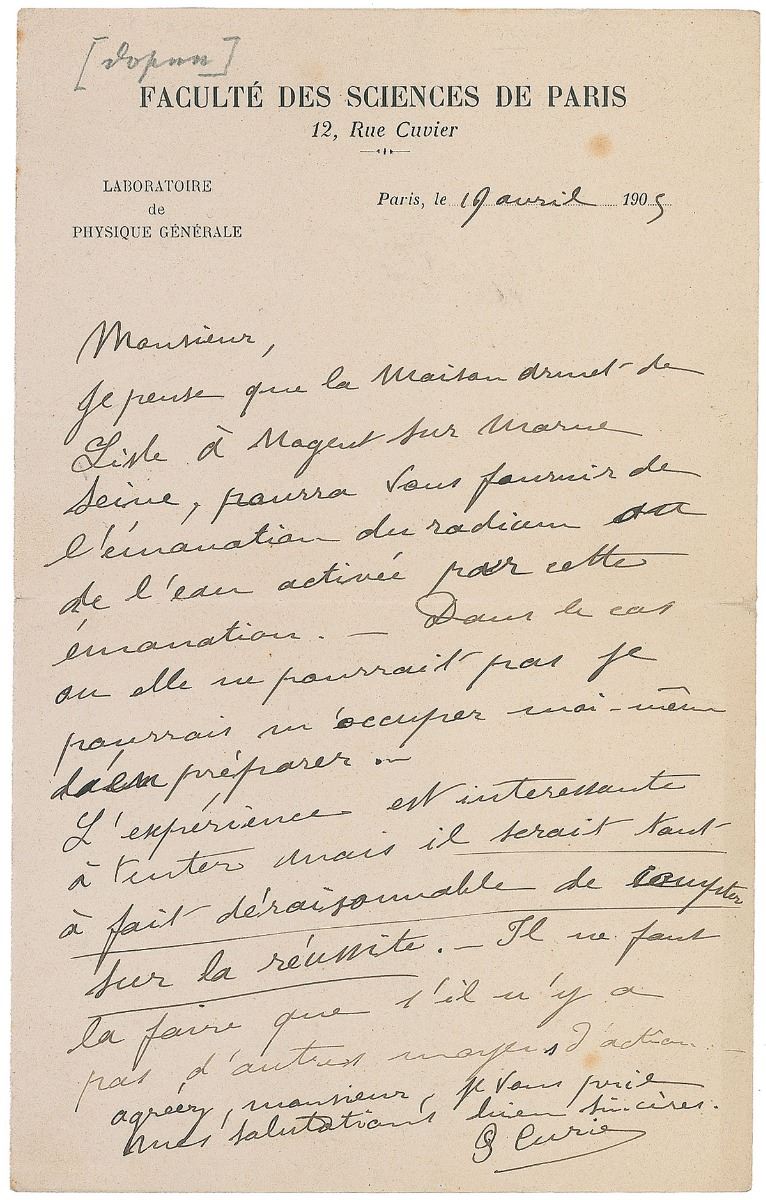 FACULTÉ DES SCIENCES DE PARIS
12, Rue Cuvier
LABORATOIRE
de
PHYSIQUE GÉNÉRALE
Paris, le 19 avril 1905
Monsieur,
Je pense que la Maison de
Lisle à Nogent sur Marne
Seine, pourra vous fournir de
l'émanation du radium ou
de l'eau activée par cette
émanation. — Dans le cas
ou elle ne pourrait pas je
pourrais m'occuper moi-même
d'en préparer. —
L'expérience est interessante
à tenter mais il serait tout
à fait déraisonnable de compter
sur la réussite. — Il ne faut
la faire que s'il n'y a
pas d'autres moyens d'action. —
agréez, monsieur, je vous prie
mes salutations bien sincères.
P Curie